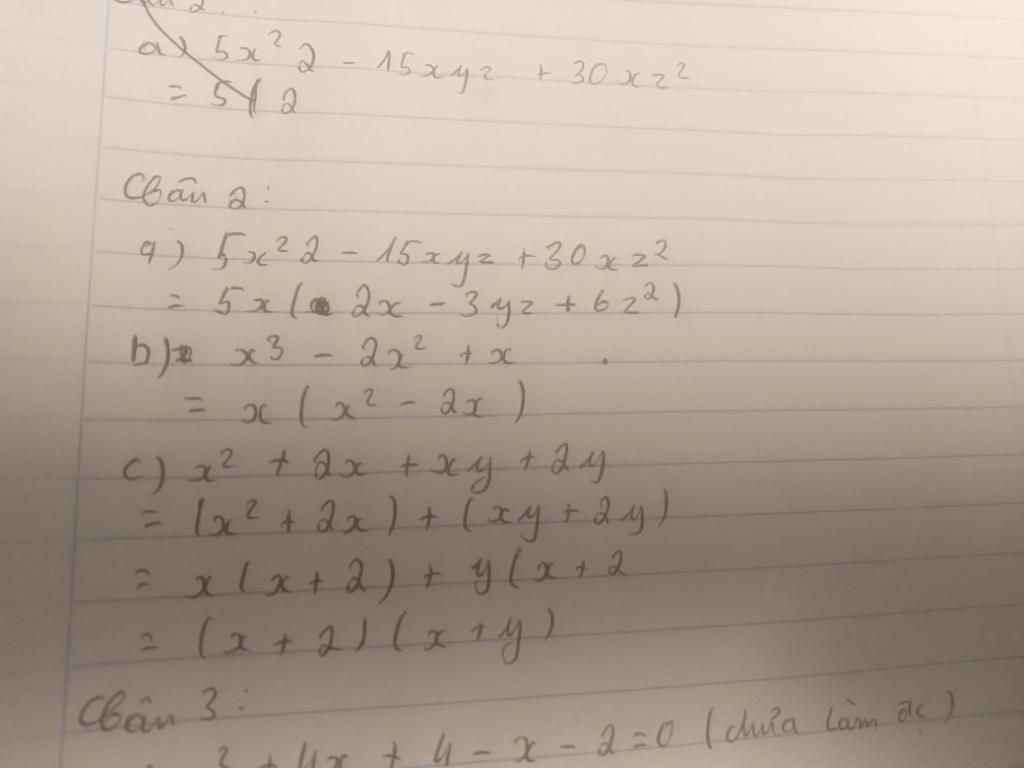 a) 5x² 2 - 15xyz + 30xz²
= 5( 2
Câu 2:
a) 5x² 2 - 15xyz + 30xz²
= 5x( 2x - 3yz + 6z²)
b) x³ - 2x² + x
= x ( x² - 2x )
c) x² + 2x + xy + 2y
= (x² + 2x) + (xy + 2y)
= x (x + 2) + y (x + 2
= (x + 2) (x + y)
Câu 3:
² + 4x + 4 - x - 2 = 0 (chưa làm đc)